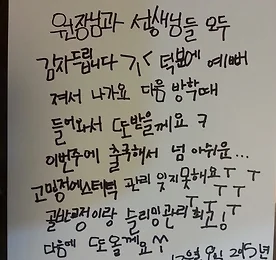 원장님과 선생님들 모두
감사드립니다 덕분에 예뻐
져서 나가요 다음 방학때
들어와서 또받을께요 ㅋ
이번주에 출국해서 넘 아쉬운...
고밍정에스테틱 관리 잊지못해요 ㅜㅜㅜ
골반교정이랑 슬리밍관리 최고 ㅜㅜ
다음에 또올게요